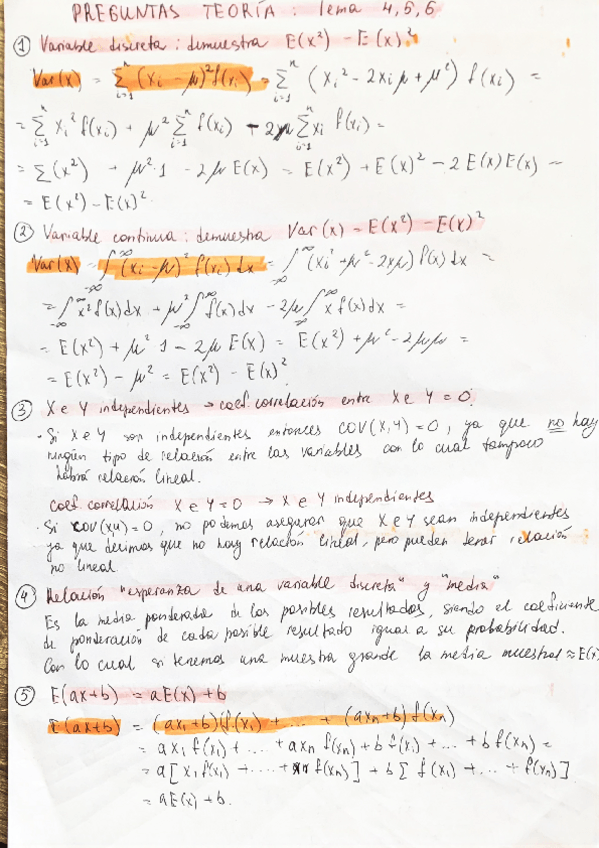 PREGUNTAS TEORÍA : Tema 4,5,6
① Variable discreta : demuestra E(x²) - E(x)²
Var(x) = ∑ᵢ₌₁ⁿ (xᵢ - μ)² f(xᵢ) = ∑ᵢ₌₁ⁿ (xᵢ² - 2xᵢμ + μ²) f(xᵢ) =
= ∑ᵢ₌₁ⁿ xᵢ² f(xᵢ) + μ² ∑ᵢ₌₁ⁿ f(xᵢ) - 2μ ∑ᵢ₌₁ⁿ xᵢ f(xᵢ) =
= ∑(x²) + μ²·1 - 2μ E(x) = E(x²) + E(x)² - 2E(x)E(x) =
= E(x²) - E(x)²
② Variable continua : demuestra Var(x) = E(x²) - E(x)²
Var(x) = ∫ (xᵢ-μ)² f(xᵢ) dx = ∫ (xᵢ² + μ² - 2xμ) f(x) dx =
= ∫ x² f(x) dx + μ² ∫ f(x) dx - 2μ ∫ x f(x) dx =
= E(x²) + μ² 1 - 2μ E(x) = E(x²) + μ² - 2μμ =
= E(x²) - μ² = E(x²) - E(x)².
③ X e Y independientes → coef. correlación entre X e Y = 0.
· Si X e Y son independientes entonces COV(X,Y) = 0, ya que no hay
ningún tipo de relación entre las variables con lo cual tampoco
habrá relación lineal.
coef. correlación X e Y = 0 → X e Y independientes
· Si COV(XY) = 0, no podemos asegurar que X e Y sean independientes
ya que decimos que no hay relación lineal, pero pueden tener relación
no lineal.
④ Relación "esperanza de una variable discreta" y "media"
Es la media ponderada de los posibles resultados, siendo el coeficiente
de ponderación de cada posible resultado igual a su probabilidad.
Con lo cual si tenemos una muestra grande la media muestral ≈ E(x)
⑤ E(ax+b) = aE(x)+b
E(ax+b) = (ax₁+b) f(x₁) + ... + (axₙ+b) f(xₙ)
= ax₁ f(x₁) + ... + axₙ f(xₙ) + b f(x₁) + ... + b f(xₙ) =
= a[x₁ f(x₁) + ... + xₙ f(xₙ)] + b[f(x₁) + ... + f(xₙ)]
= aE(x) + b.